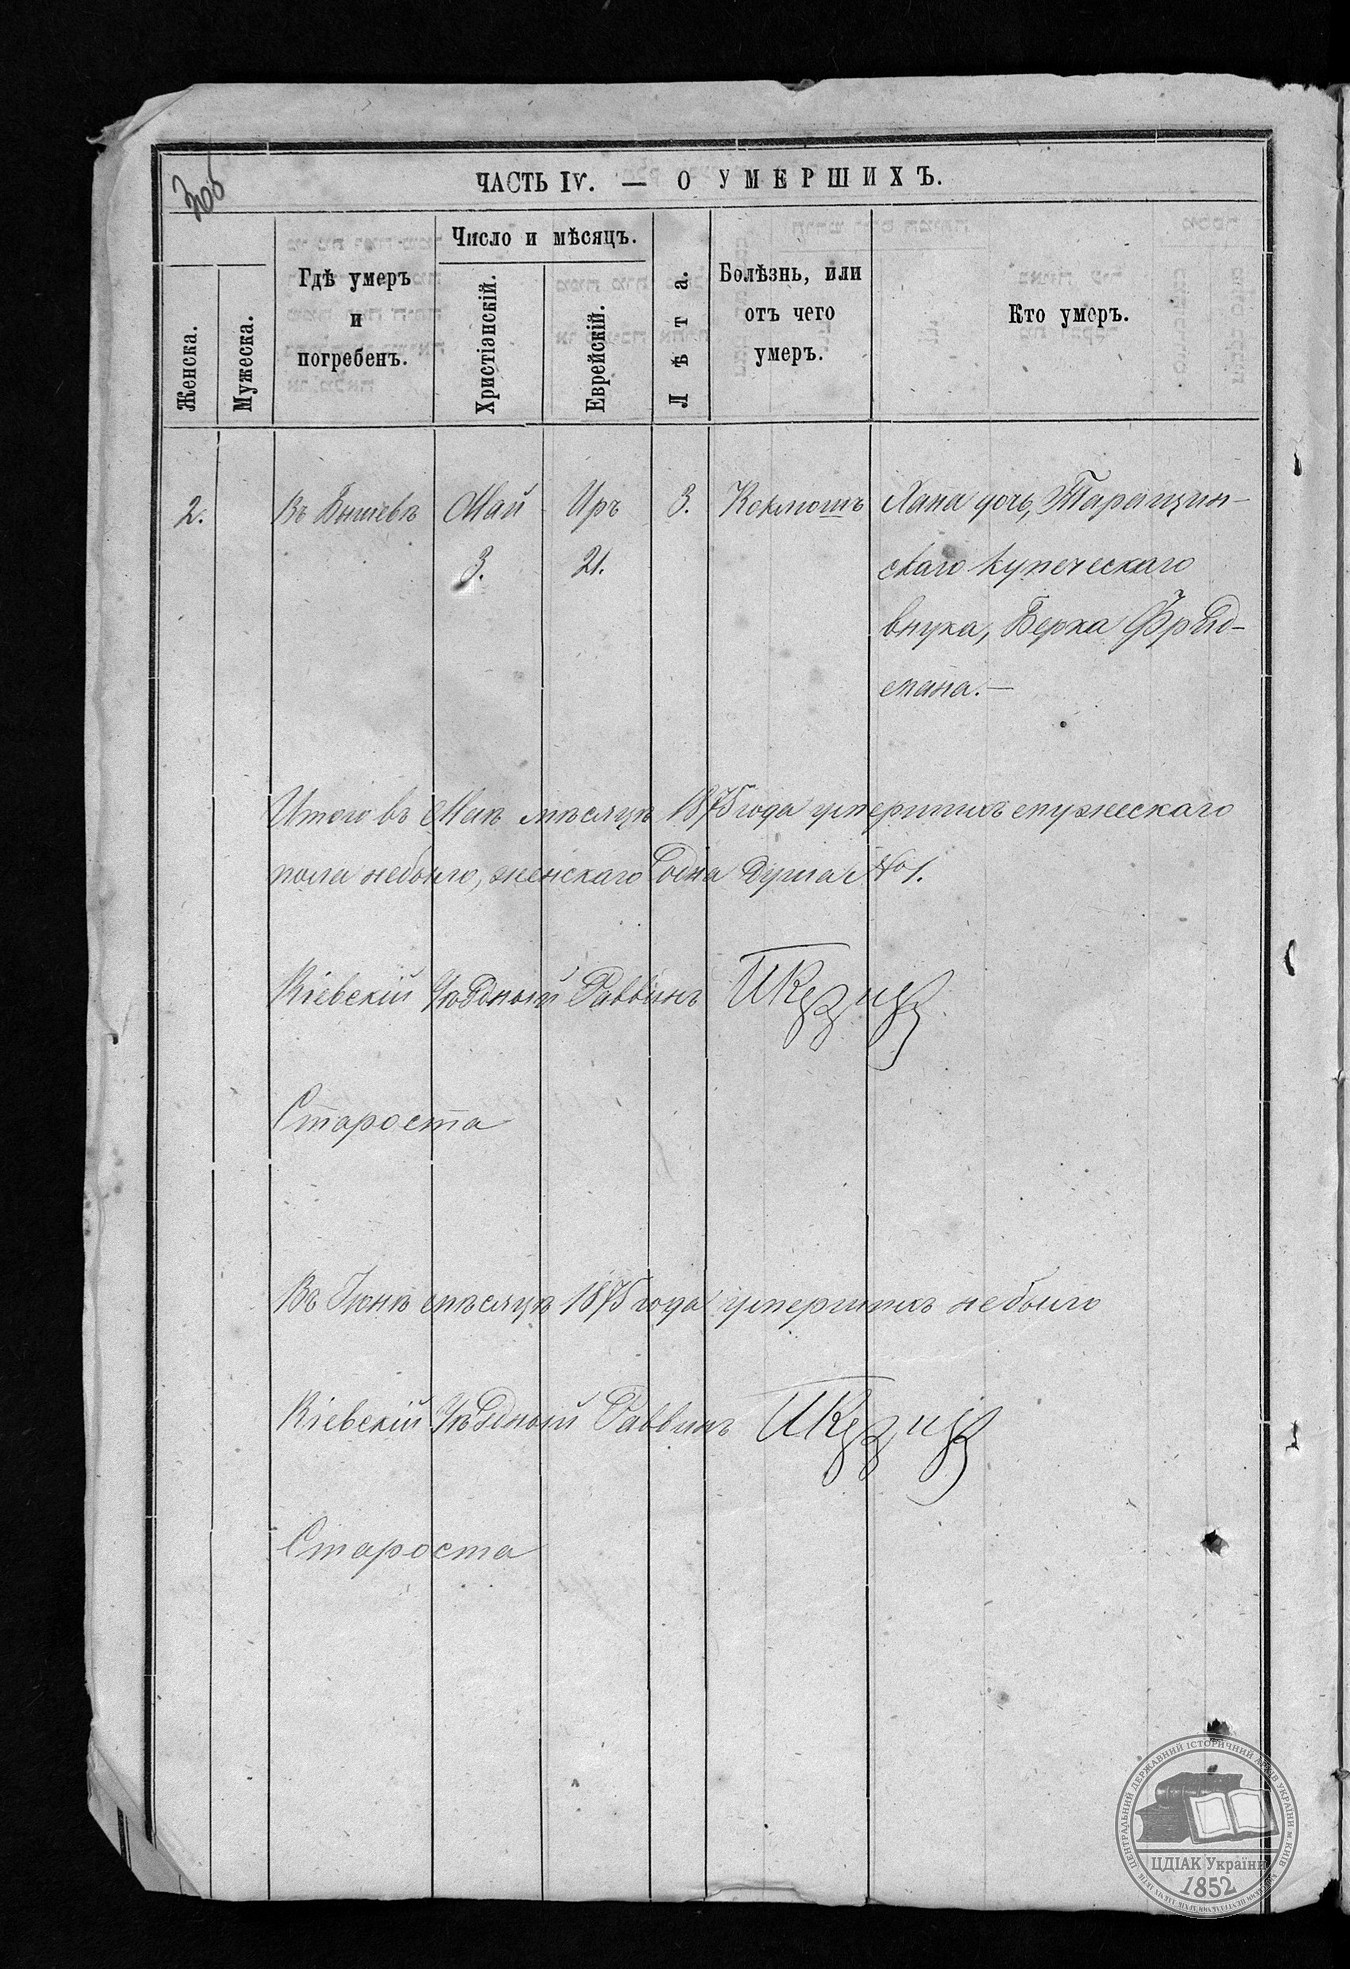 306
ЧАСТЬ IV. — О УМЕРШИХЪ.
Женска.
Мужеска.
Гдѣ умеръ
и
погребенъ.
Число и мѣсяцъ.
Христіанскій.
Еврейскій.
Лѣта.
Болѣзнь, или
отъ чего
умеръ.
Кто умеръ.
2. Въ Бышевѣ Май Иръ 3. Коклюшъ Хана дочь, Таращин-
3. 21. скаго купеческаго
внука, Берка Фрид-
мана.—
Итого въ Маѣ мѣсяцѣ 1875 года умершихъ мужескаго
пола небыло, женскаго одна душа № 1.
Кіевскій Уѣздный Раввинъ
Староста
Въ Іюнѣ мѣсяцѣ 1875 года умершихъ небыло
Кіевскій Уѣздный Раввинъ
Староста
ЦЕНТРАЛЬНИЙ ДЕРЖАВНИЙ ІСТОРИЧНИЙ АРХІВ УКРАЇНИ м. КИЇВ
ЦДІАК України
1852